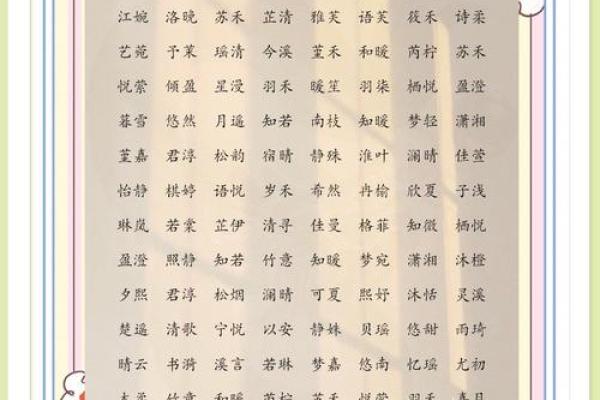 江婉 洛晚 苏禾 芷清 雅芙 语芙 筱禾 诗柔
艺菀 予茉 瑶清 今溪 堇禾 和暖 芮柠 苏禾
悦萦 倾盈 星漫 羽禾 暖笙 羽柒 栖悦 盈澄
暮雪 悠然 月遥 知若 南枝 知暖 梦轻 潇湘
堇嘉 君淳 松韵 宿晴 静姝 淮叶 澜晴 佳萱
怡静 棋婷 语悦 岁禾 希然 冉榆 欣夏 子浅
琳岚 若棠 芷伊 清寻 佳曼 格菲 知微 栖悦
盈澄 照静 知若 竹意 知暖 梦宛 潇湘 沐橙
夕熙 君淳 松烟 澜晴 可夏 熙妤 沐恬 灵溪
楚遥 清歌 宁悦 以安 静姝 贝瑶 悠甜 雨琦
晴云 书漪 溪言 若琳 梦嘉 悠南 忆瑶 尤初
竹意 和暖 芮柠 苏禾 悦萦 羽禾